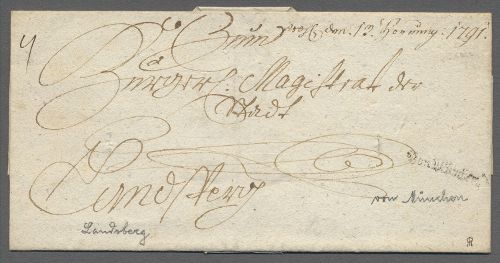 Zum
den. 13. Hornung. 1791.
Bürger. Magistrat der
Stadt
Landsberg
von München
Landsberg